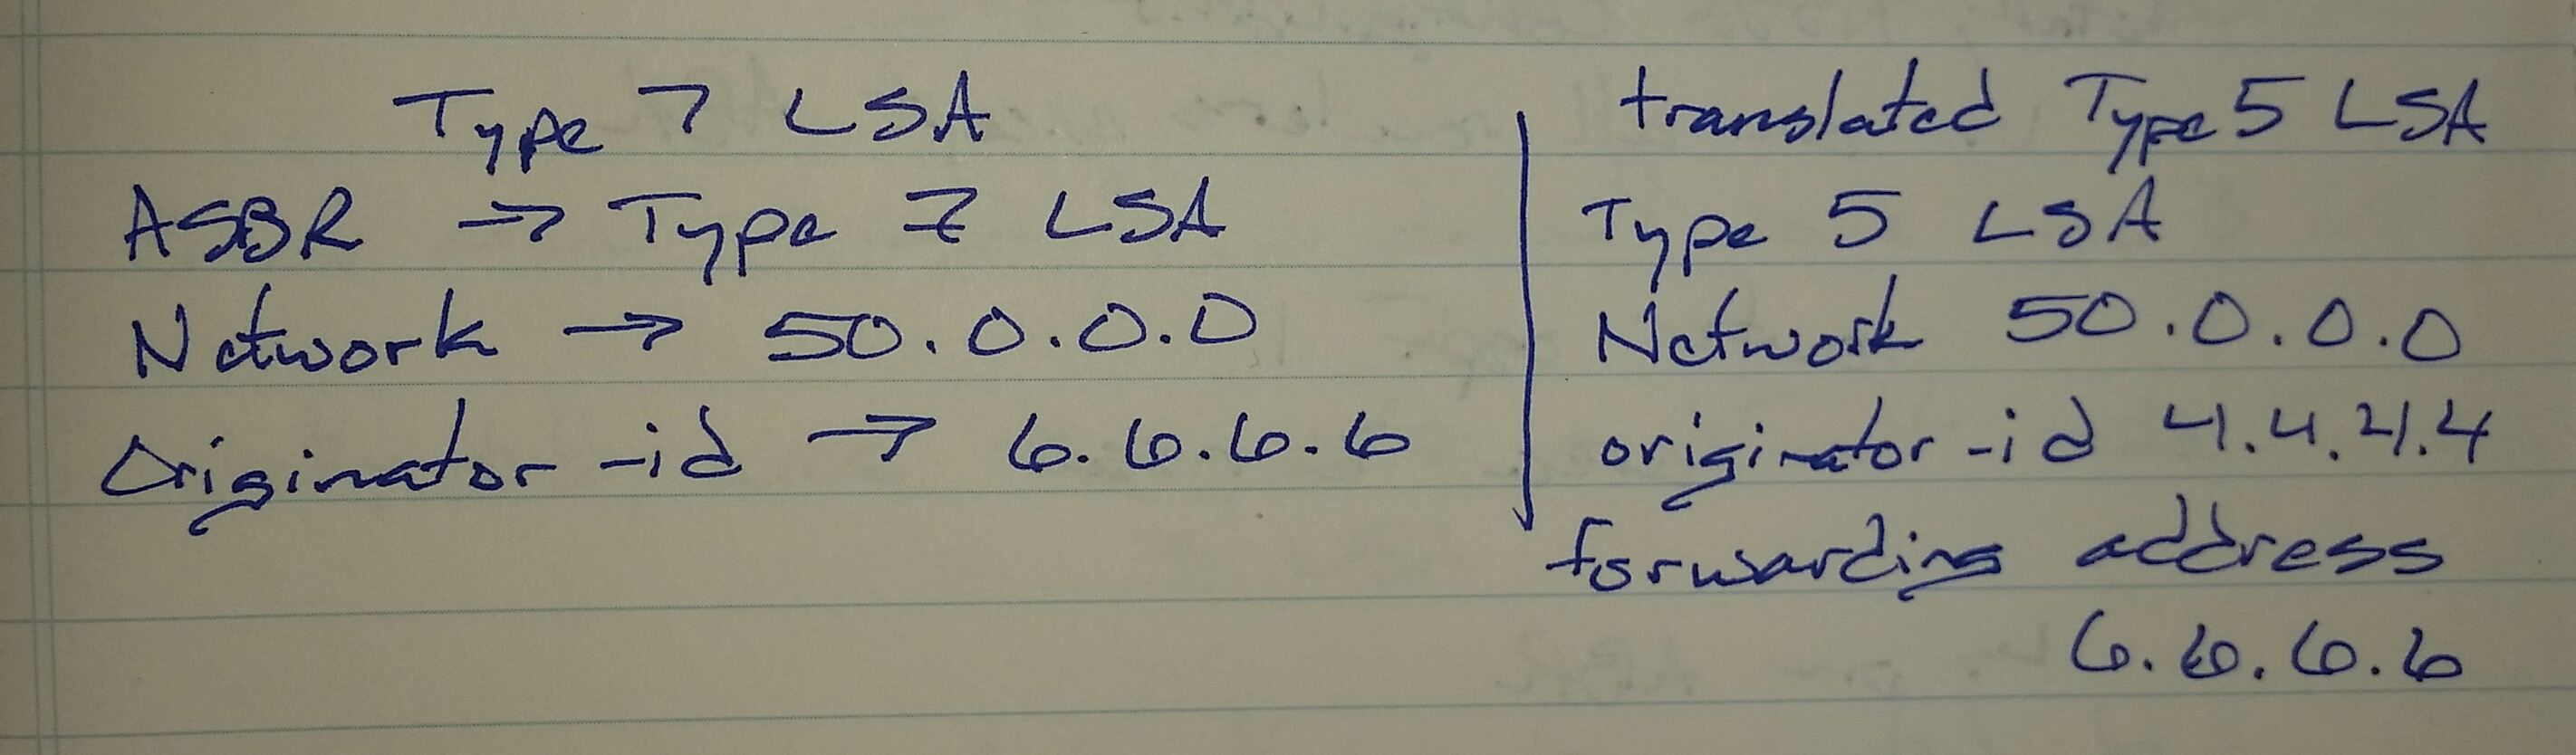 Type 7 LSA
ASBR → Type 7 LSA
Network → 50.0.0.0
Originator -id → 6.6.6.6
translated Type 5 LSA
Type 5 LSA
Network 50.0.0.0
originator -id 4.4.4.4
forwarding address
6.6.6.6